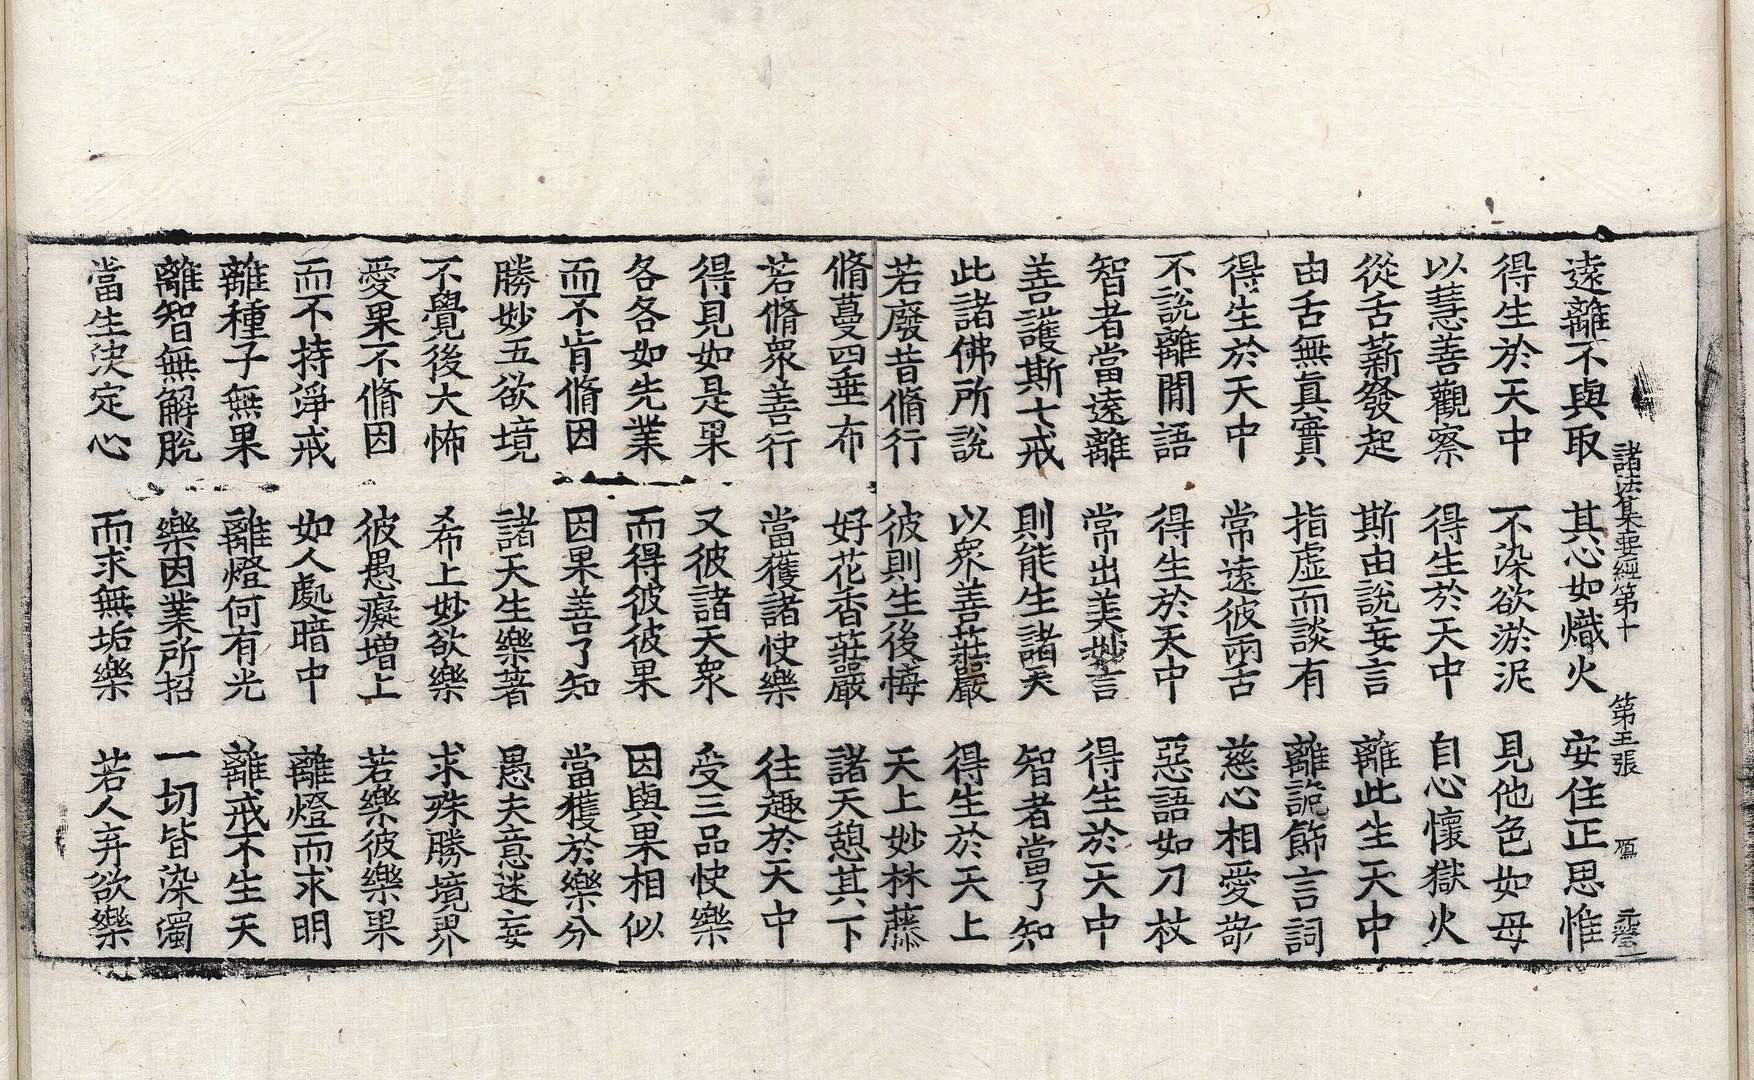 諸法集要經第十 第五張 願
遠離不與取 其心如熾火 安住正思惟
得生於天中 不染欲淤泥 見他色如母
以慧善觀察 得生於天中 自心懷獄火
從舌薪發起 斯由說妄言 離此生天中
由舌無真實 指虛而談有 離諸飾言詞
得生於天中 常遠彼兩舌 慈心相愛
不說離間語 得生於天中 惡語如刀杖
智者當遠離 常出美妙言 得生於天中
善護斯七戒 則能生諸天 智者當了知
此諸佛所說 以衆善莊嚴 得生於天上
若廢昔脩行 彼則生後悔 天上妙林藤
脩蔓四垂布 好花香莊嚴 諸天憩其下
若脩衆善行 當獲諸快樂 往趣於天中
得見如是果 又彼諸天衆 受三品快樂
各各如先業 而得彼彼果 因與果相似
而不肯脩因 因果善了知 當獲於樂分
勝妙五欲境 諸天生樂著 愚夫意迷妄
不覺後大怖 希上妙欲樂 求殊勝境界
愛果不脩因 彼愚癡增上 若樂彼樂果
而不持淨戒 如人處暗中 離燈而求明
離種子無果 離燈何有光 離戒不生天
離智無解脫 樂因業所招 一切皆染濁
當生決定心 而求無垢樂 若人弃欲樂